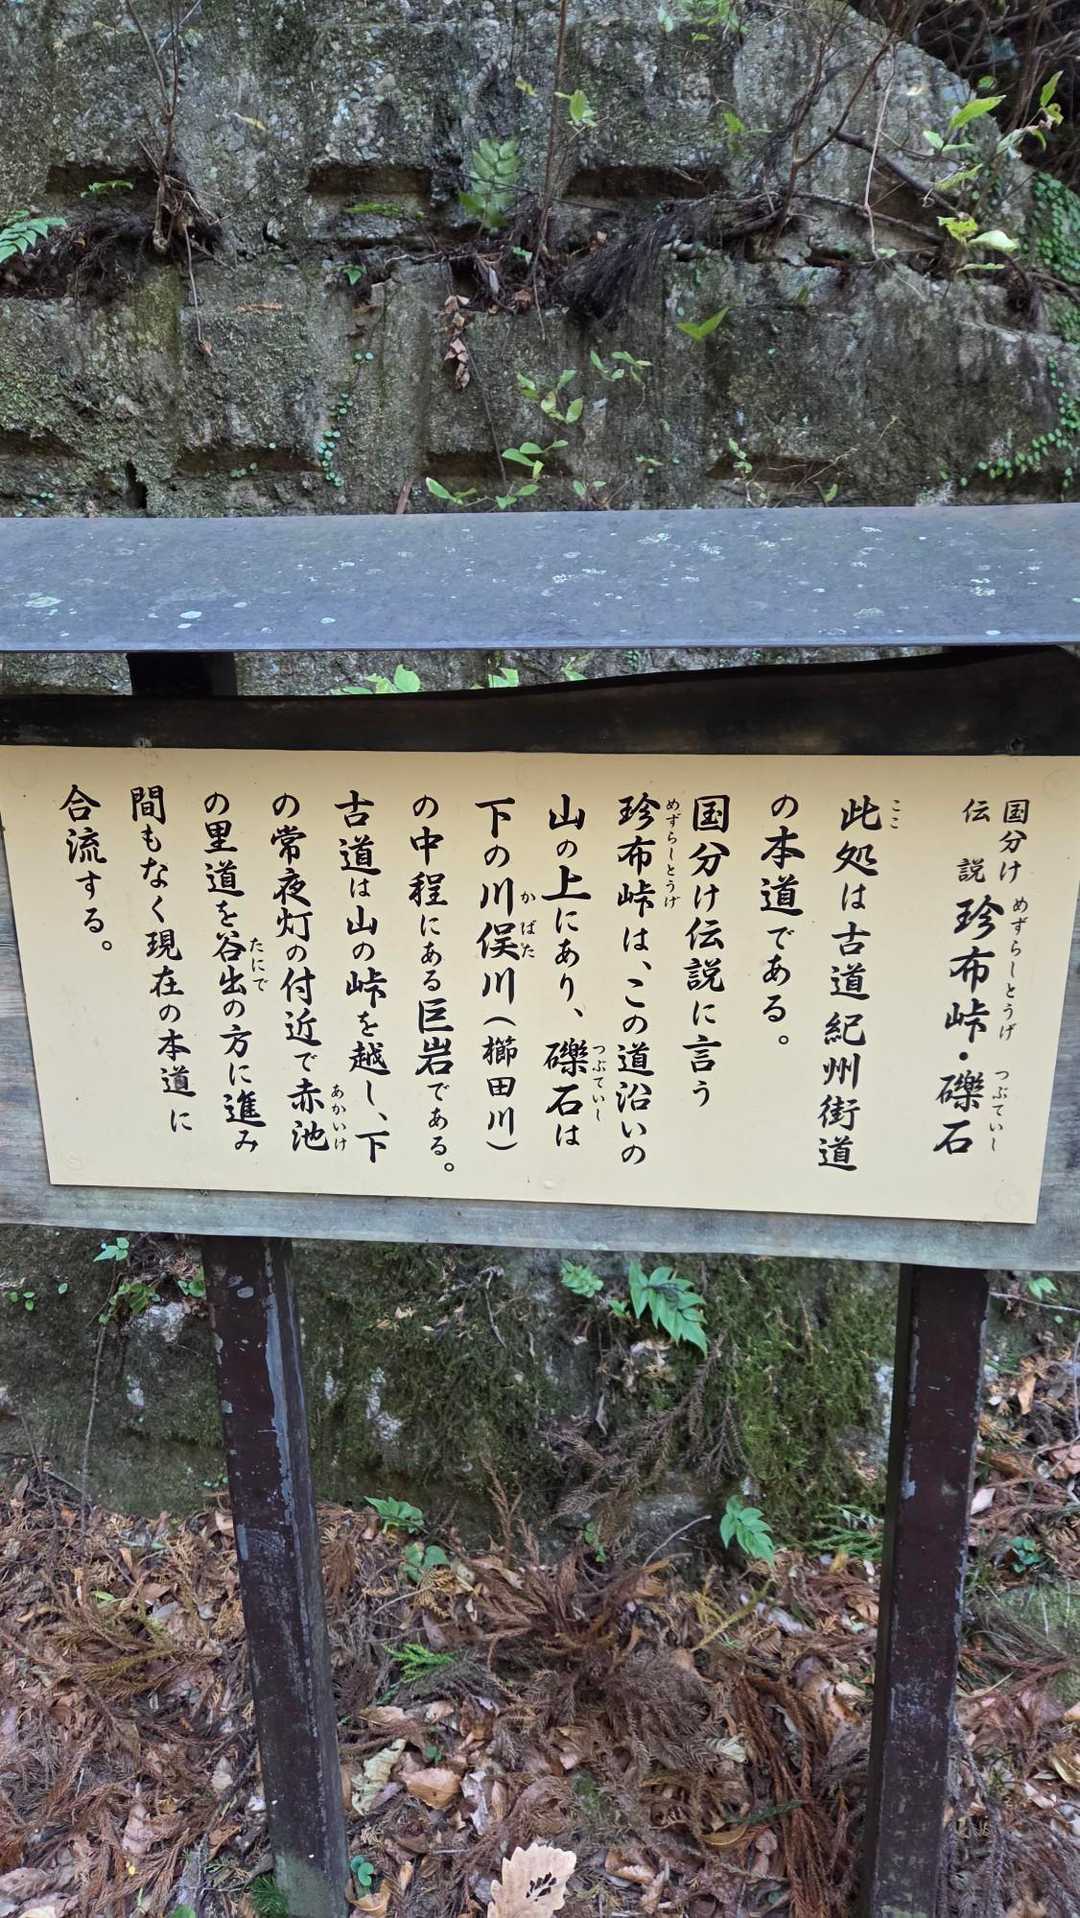 国分け伝説 珍布峠・礫石
めずらしとうげ つぶていし
此処は古道紀州街道
ここ
の本道である。
国分け伝説に言う
珍布峠は、この道沿いの
めずらしとうげ
山の上にあり、礫石は
つぶていし
下の川俣川(櫛田川)
かばた
の中程にある巨岩である。
古道は山の峠を越し、下
の常夜灯の付近で赤池
あかいけ
の里道を谷出の方に進み
たにで
間もなく現在の本道に
合流する。